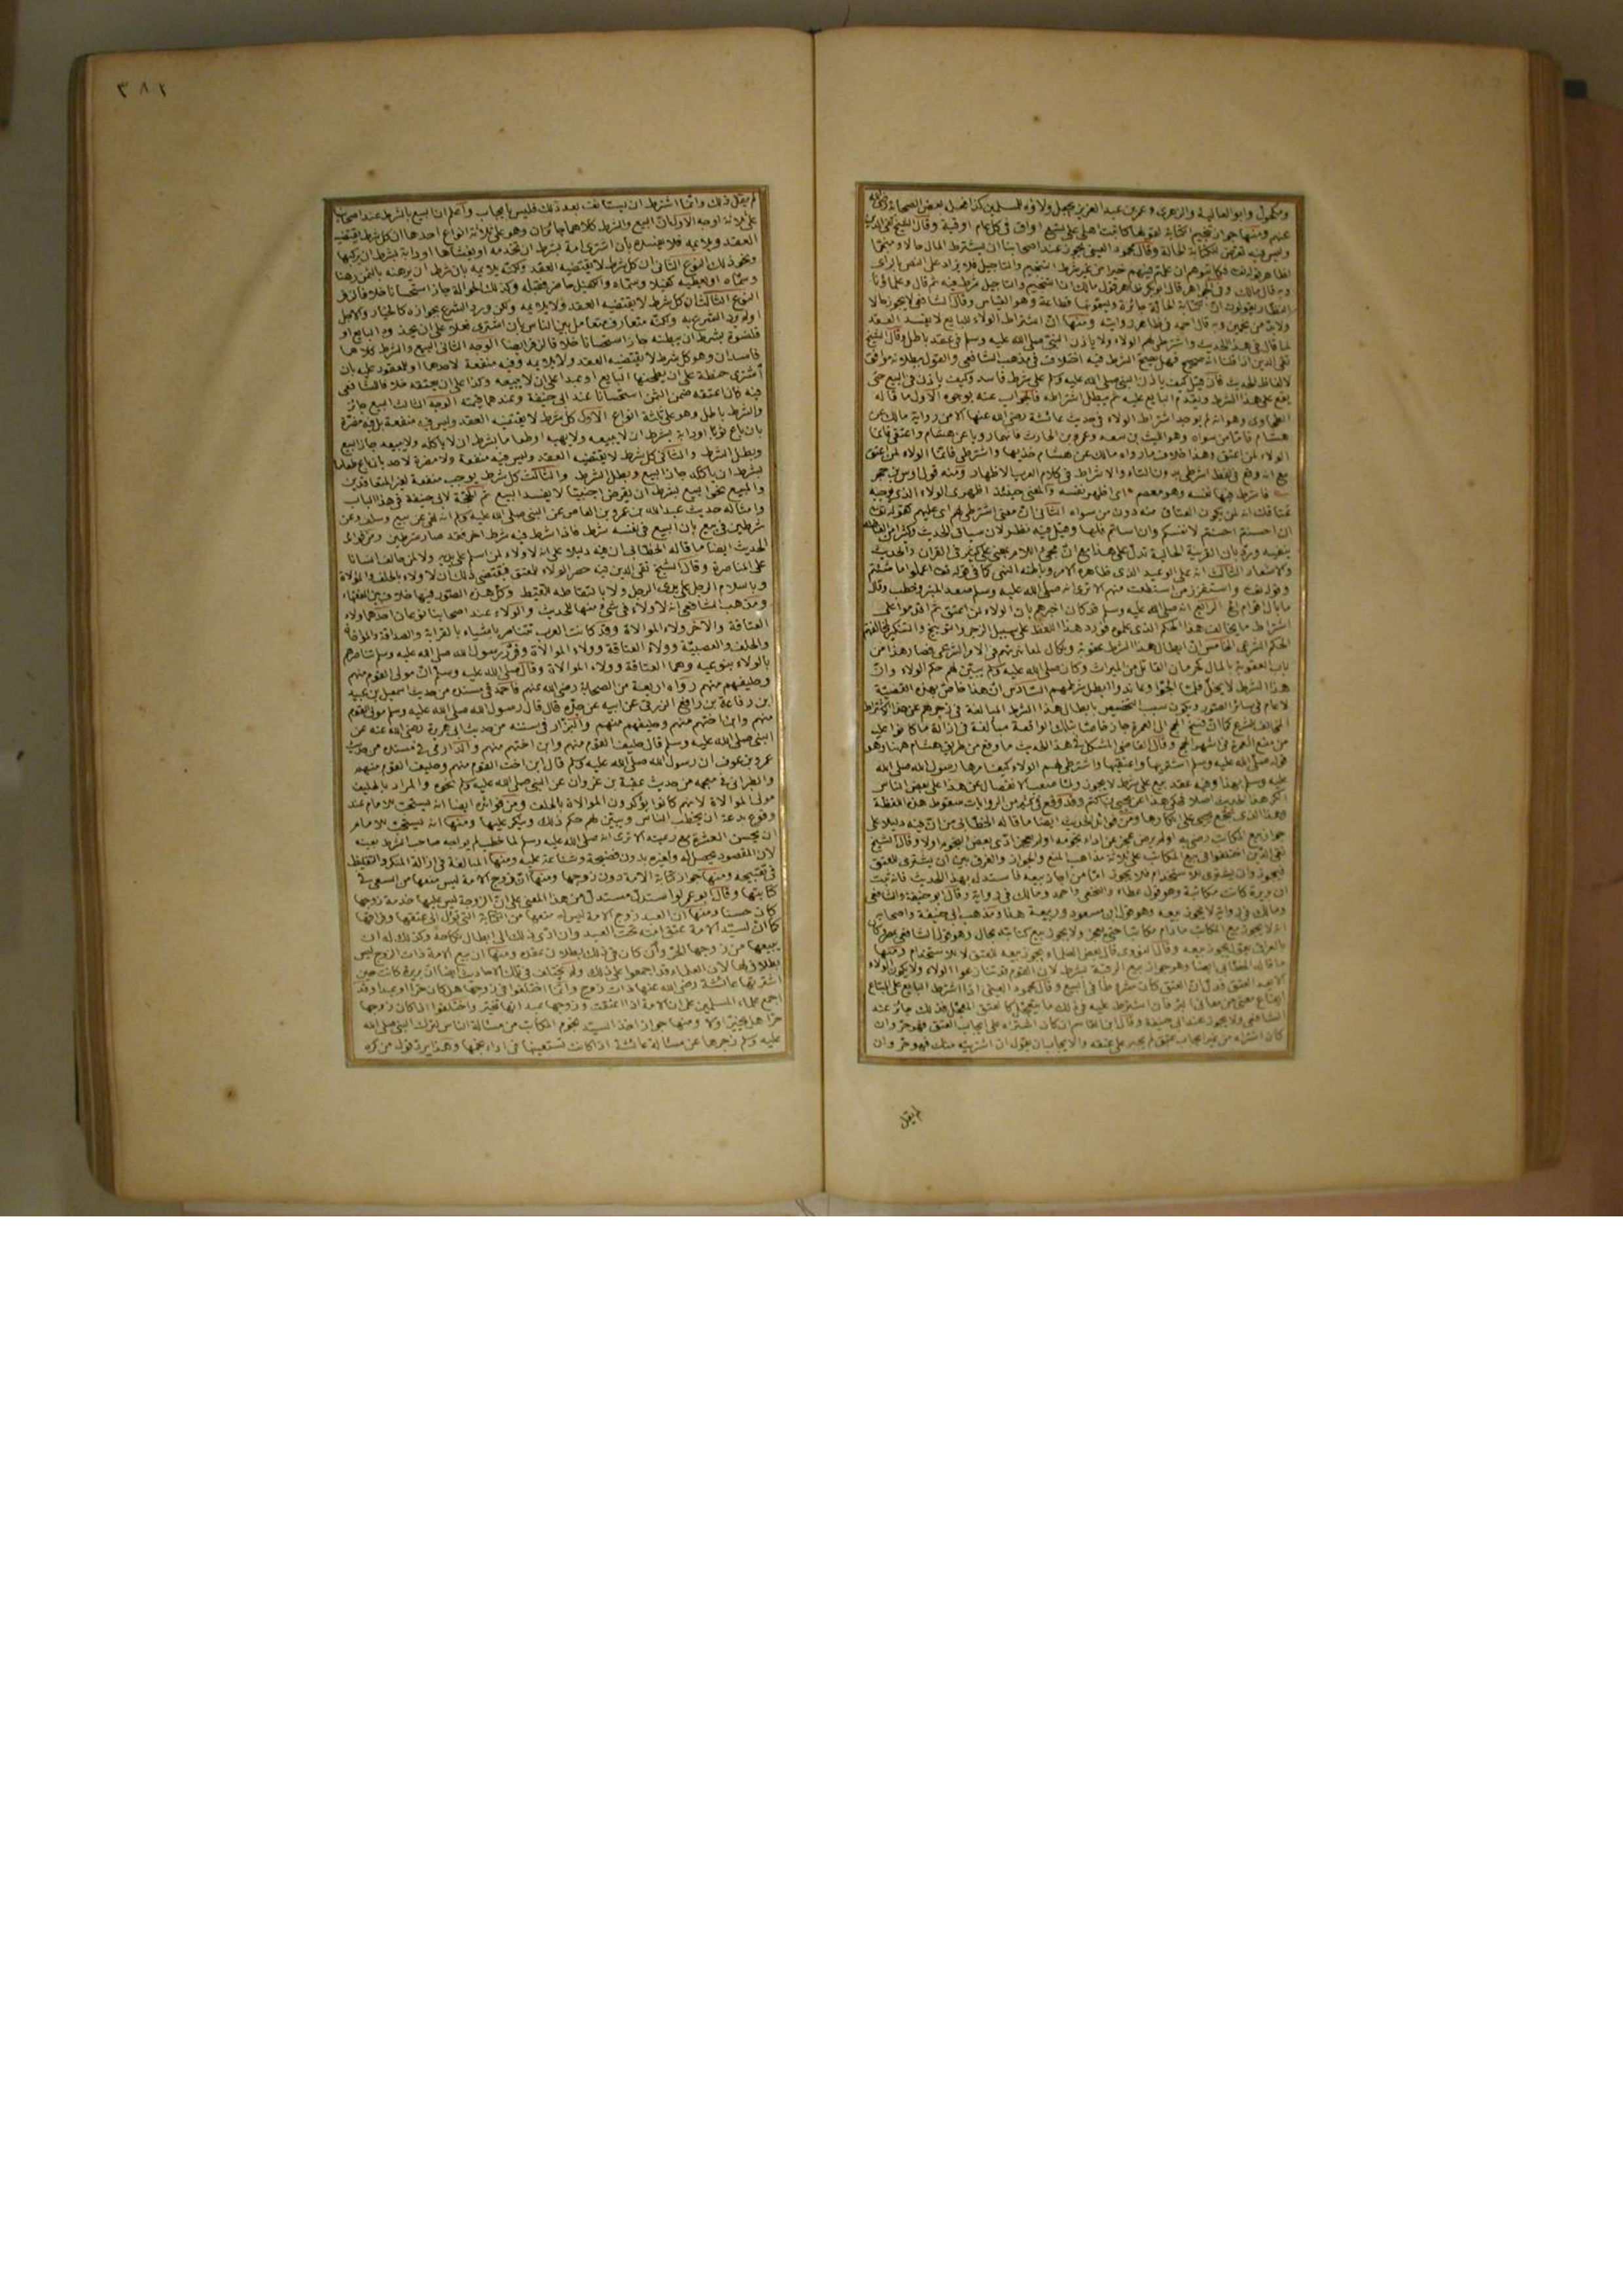 ومكحول وابو العالية والزهري وعمر بن عبد العزيز يجعل ولاؤه للمسلمين كذا فعل بعض الصحابة رضي الله
عنهم ومنها جواز تنجيم الكتابة لقولها كاتبت اهلي على تسع اواق في كل عام اوقية وقال الشيخ تقي الدين
وليس فيه تعرض للكتابة الحالة وقال محمود العيني يجوز عند اصحابنا ان يشترط المال حالا ومنجما
لظاهر قوله تعالى فكاتبوهم ان علمتم فيهم خيرا من غير شرط التنجيم والتاجيل فلا يزاد على النص بالرأي
وبه قال مالك وفي الجواهر قال ابو بكر ظاهر قول مالك ان التنجيم والتاجيل شرط فيه ثم قال وعلماؤنا
النظار يقولون ان الكتابة الحالة جائزة ويسمونها قطاعة وهو القياس وقال الشافعي لا يجوز حالا
ولا بد من نجمين وبه قال احمد في ظاهر روايته ومنها ان اشتراط الولاء للبايع لا يفسد العقد
لما قال في هذا الحديث واشترطي لهم الولاء ولا ياذن النبي صلى الله عليه وسلم في عقد باطل وقال الشيخ
تقي الدين اذا قلنا انه صحيح فهل يصح الشرط فيه اختلاف في مذهب الشافعي والقول ببطلانه موافق
لالفاظ الحديث فان قيل كيف ياذن النبي صلى الله عليه وسلم على شرط فاسد وكيف ياذن في البيع حتى
يقع على هذا الشرط ويقدم البايع عليه ثم يبطل اشتراطه فالجواب عنه بوجوه الاول ما قاله
الطحاوي وهو انه لم يوجد اشتراط الولاء في حديث عائشة رضي الله عنها الا من رواية مالك عن
هشام فاما من سواه وهو الليث بن سعد وعمرو بن الحارث فانهما رويا عن هشام واعتقي فانما
الولاء لمن اعتق وهذا خلاف ما رواه مالك عن هشام خذيها واشترطي فانما الولاء لمن اعتق
مع انه وقع في لفظ اشرطي بدون التاء والاشراط في كلام العرب الاظهار ومنه قول اوس بن حجر
فاشرط فيها نفسه وهو معصم اي اظهر نفسه والمعنى حينئذ اظهري الولاء الذي يوجبه
عتاقك انه لمن يكون العتاق منه دون من سواه الثاني ان معنى اشترطي لهم اي عليهم كقوله تعالى
ان احسنتم احسنتم لانفسكم وان اساتم فلها وقيل فيه نظر لان سياق الحديث وكثرا من الفاظه
ينفيه ورد بان القرينة الحالية تدل على هذا مع ان مجيء اللام بمعنى على كثير في القران والحديث
والاشعار الثالث انه على الوعيد الذي ظاهره الامر وباطنه النهي كما في قوله تعالى اعملوا ما شئتم
وقوله تعالى واستفزز من استطعت منهم الا ترى انه صلى الله عليه وسلم صعد المنبر وخطب وقال
ما بال اقوام الخ الرابع انه صلى الله عليه وسلم قد كان اخبرهم بان الولاء لمن اعتق ثم اقدموا على
اشتراط ما يخالف هذا الحكم الذي علموه فورد هذا اللفظ على سبيل الزجر والتوبيخ والتنكير لمخالفتهم
الحكم الشرعي الخامس ان ابطال هذا الشرط عقوبة ونكال لمعاندتهم في الامر الشرعي فصار هذا من
باب العقوبة بالمال كحرمان القاتل من الميراث وكان صلى الله عليه وسلم يبين لهم حكم الولاء وان
هذا الشرط لا يحل فلما الحوا وعاندوا ابطل شرطهم السادس ان هذا خاص بهذه القضية
لا عام في سائر الصور ويكون سبب التخصيص بابطال هذا الشرط المبالغة في زجرهم عن هذا الاشتراط
المخالف للشرع كما ان فسخ الحج الى العمرة جاز خاصا بتلك الواقعة مبالغة في ازالة ما كانوا عليه
من منع العمرة في اشهر الحج وقال القاضي المشكل في هذا الحديث ما وقع من طريق هشام هنا وهو
قوله صلى الله عليه وسلم اشتريها واعتقيها واشترطي لهم الولاء كيف امرها رسول الله صلى الله
عليه وسلم بهذا وفيه عقد بيع على شرط لا يجوز ولما صعب الانفصال عن هذا على بعض الناس
انكر هذا الحديث اصلا فحكي هذا عن يحيى بن اكثم وقد وقع في كثير من الروايات سقوط هذه اللفظة
وهذا الذي شجع يحيى على انكارها ومن فوائد الحديث ايضا ما قاله الخطابي من ان فيه دليلا على
جواز بيع المكاتب رضي به او لم يرض عجز عن اداء نجومه او لم يعجز ادى بعض النجوم او لا وقال الشيخ
تقي الدين اختلفوا في بيع المكاتب على ثلاثة مذاهب المنع والجواز والفرق بين ان يشترى للعتق
فيجوز وان يشترى للاستخدام فلا يجوز اما من اجاز بيعه فاستدل بهذا الحديث فانه ثبت
ان بريرة كانت مكاتبة وهو قول عطاء والنخعي واحمد ومالك في رواية وقال ابو حنيفة والشافعي
ومالك في رواية لا يجوز بيعه وهو قول ابن مسعود وربيعة هذا ومذهب ابي حنيفة واصحابه
انه لا يجوز بيع المكاتب ما دام مكاتبا حتى يعجز ولا يجوز بيع كتابته بحال وهو قول الشافعي بمصر
بالعراق يقول يجوز بيعه وقال النووي قال بعض العلماء يجوز بيعه للعتق لا للاستخدام ومنها
ما قاله الخطابي ايضا وهو جواز بيع الرقبة بشرط لان القوم قد تنازعوا الولاء ولا يكون الولاء
الا بعد العتق فدل ان العتق كان مشروطا في البيع وقال محمود العيني اذا اشترط البايع على المبتاع
ايقاع معنى من معاني البر فان اشترط عليه في ذلك ما يتعجل كالعتق المعجل فذلك جائز عند
الشافعي ولا يجوز عند ابي حنيفة وقال ابن القاسم ان كان اشتراه على ايجاب العتق فهو حر وان
كان اشتراه من غير ايجاب عتق لم يجبر على عتقه والايجاب ان يقول ان اشتريته منك فهو حر وان
لم يقل
٣٨٢
لم يقل ذلك وانما اشترط ان يستانف بعد ذلك فليس بايجاب واعلم ان البيع بالشرط عند اصحابنا
على ثلاثة اوجه الاول ان البيع والشرط كلاهما جائزان وهو على ثلاثة انواع احدها ان كل شرط يقتضيه
العقد ويلائمه فلا يفسده بان اشترى امة بشرط ان تخدمه او يغشاها او دابة بشرط ان يركبها
ونحو ذلك النوع الثاني ان كل شرط لا يقتضيه العقد ولكنه يلائمه بان شرط ان يرهنه بالثمن رهنا
وسماه او يعطيه كفيلا وسماه والكفيل حاضر فقبله وكذلك الحوالة جاز استحسانا خلافا لزفر
النوع الثالث ان كل شرط لا يقتضيه العقد ولا يلائمه ولكن ورد الشرع بجوازه كالخيار والاجل
او لم يرد الشرع به ولكنه متعارف متعامل بين الناس بان اشترى نعلا على ان يحذوه البايع او
قلنسوة بشرط ان يبطنه جاز استحسانا خلافا لزفر ايضا الوجه الثاني البيع والشرط كلاهما
فاسدان وهو كل شرط لا يقتضيه العقد ولا يلائمه وفيه منفعة لاحدهما او للمعقود عليه بان
اشترى حنطة على ان يطحنها البايع او عبدا على ان لا يبيعه وكذا على ان يعتقه خلافا للشافعي
فيه كان اعتقه ضمن الثمن استحسانا عند ابي حنيفة وعندهما قيمته الوجه الثالث البيع جائز
والشرط باطل وهو على ثلثة انواع الاول كل شرط لا يقتضيه العقد وليس فيه منفعة بل فيه مضرة
بان باع ثوبا او دابة بشرط ان لا يبيعه ولا يهبه او طعاما بشرط ان لا ياكله ولا يبيعه جاز البيع
وبطل الشرط والثاني كل شرط لا يقتضيه العقد وليس فيه منفعة ولا مضرة لاحد بان باع طعاما
بشرط ان ياكله جاز البيع وبطل الشرط والثالث كل شرط يوجب منفعة لغير المتعاقدين
والمبيع نحو البيع بشرط ان يقرض اجنبيا لا يفسد البيع ثم الحجة لابي حنيفة في هذا الباب
وامثاله حديث عبد الله بن عمرو بن العاص عن النبي صلى الله عليه وسلم انه نهى عن بيع وسلف وعن
شرطين في بيع بان البيع في نفسه شرط فاذا شرط فيه شرط اخر فقد صار شرطين ومن فوائد
الحديث ايضا ما قاله الخطابي ان فيه دليلا على انه لا ولاء لمن اسلم على يديه ولا لمن حالف انسانا
على المناصرة وقال الشيخ تقي الدين فيه حصر الولاء للمعتق فيقتضي ذلك ان لا ولاء بالحلف والموالاة
وباسلام الرجل على يدي الرجل ولا بالتقاطه للقيط وكل هذه الصور فيها خلاف بين الفقهاء
ومذهب الشافعي انه لا ولاء في شيء منها للحديث والولاء عند اصحابنا نوعان احدهما ولاء
العتاقة والآخر ولاء الموالاة وقد كانت العرب تتناصر باشياء بالقرابة والصداقة والمواخاة
والحلف والعصبية وولاء العتاقة وولاء الموالاة وقرر رسول الله صلى الله عليه وسلم تناصرهم
بالولاء بنوعيه وهما العتاقة وولاء الموالاة وقال صلى الله عليه وسلم ان مولى القوم منهم
وحليفهم منهم رواه اربعة من الصحابة رضي الله عنهم فاحمد في مسنده من حديث اسمعيل بن عبيد
ابن رفاعة بن رافع الزرقي عن ابيه عن جده قال قال رسول الله صلى الله عليه وسلم مولى القوم
منهم وابن اختهم منهم وحليفهم منهم والبزار في سننه من حديث ابي هريرة رضي الله عنه عن
النبي صلى الله عليه وسلم قال حليف القوم منهم وابن اختهم منهم والدارمي في مسنده من حديث
عمرو بن عوف ان رسول الله صلى الله عليه وسلم قال ابن اخت القوم منهم وحليف القوم منهم
والطبراني في معجمه من حديث عتبة بن غزوان عن النبي صلى الله عليه وسلم نحوه والمراد بالحليف
مولى الموالاة لانهم كانوا يؤكدون الموالاة بالحلف ومن فوائده ايضا انه يستحب للامام عند
وقوع بدعة ان يخطب الناس ويبين لهم حكم ذلك وينكر عليها ومنها انه يستحب للامام
ان يحسن العشرة مع رعيته الا ترى انه صلى الله عليه وسلم لما خطب لم يواجه صاحب الشرط بعينه
لان المقصود يحصل له ولغيره بدون فضيحة وشناعة عليه ومنها المبالغة في ازالة المنكر والتغليظ
في تقبيحه ومنها جواز كتابة الامة دون زوجها ومنها ان زوج الامة ليس منعها من السعي في
كتابتها وقال ابو عمر لو استدل مستدل من هذا المعنى على ان الزوجة ليس عليها خدمة زوجها
كان حسنا ومنها ان العبد زوج الامة ليس له منعها من الكتابة التي تؤل الى عتقها وفراقها
كما ان لسيد الامة عتق امته تحت العبد وان ادى ذلك الى ابطال نكاحه وكذلك له ان
يبيعها من زوجها الحر وان كان في ذلك بطلان عقده ومنها ان بيع الامة ذات الزوج ليس
بطلاق لها لان العلماء قد اجمعوا على ذلك ولم يختلف في تلك الاحاديث ايضا ان بريرة كانت حين
اشترتها عائشة رضي الله عنها ذات زوج وانما اختلفوا في زوجها هل كان حرا او عبدا وقد
اجمع علماء المسلمين على ان الامة اذا اعتقت وزوجها عبد انها تخير واختلفوا اذا كان زوجها
حرا هل تخير او لا ومنها جواز اخذ السيد نجوم المكاتب من مسالة الناس لترك النبي صلى الله
عليه وسلم زجرها عن مسالة عائشة اذ كانت تستعينها في اداء نجمها وهذا يرد قول من كره